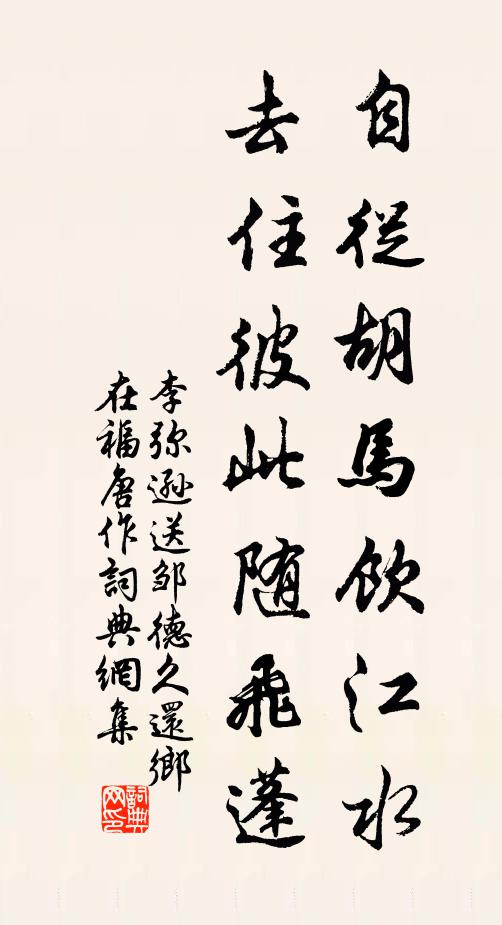 自從胡馬飲江水
去住彼此随飛蓬
李弥遜送邹德久還鄉
在福唐作詞典網集
詞典
网印